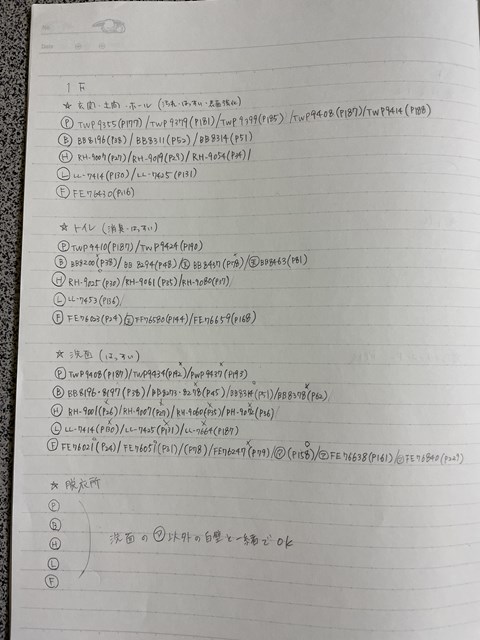 1F
☆ 玄関・土間・ホール (汚れ・はっすい・表面強化)
Ⓟ TWP9355(P177) /TWP9379(P181)/TWP9399(P185) /TWP9408(P187)/TWP9414(P188)
Ⓑ BB8196(P38)/ BB8311(P52)/ BB8314(P51)
Ⓗ RH-9007(P27)/RH-9019(P29)/RH-9054(P34)/
Ⓛ LL-7414(P130) /LL-7425(P131)
Ⓕ FE76430(P116)
☆ トイレ (消臭・はっすい)
Ⓟ TWP9410(P187)/TWP9424(P190)
Ⓑ BB8200(P38)/ BB8294(P48)/ BB8437(P78)/ BB8463(P81)
Ⓗ RH-9025(P30)/RH-9061(P35)/RH-9080(P37)
Ⓛ LL-7453(P136)
Ⓕ FE76023(P24)/ FE76580(P144)/FE76659(P168)
☆ 洗面 (はっすい)
Ⓟ TWP9408(P187)/TWP9434(P192)/TWP9437(P193)
Ⓑ BB8196・8197(P38)/BB8273・8278(P45)/ (P51)/BB8378(P62)
Ⓗ RH-9001(P26)/RH-9007(P27)/RH-9060(P35)/RH-9072(P36)
Ⓛ LL-7414(P130)/LL-7425(P131)/LL-7664(P187)
Ⓕ FE76021(P24)/FE76051(P31)/(P78)/FE76247(P79)/ (P158)/ FE76638(P161)/ FE76840(P229)
☆ 脱衣所
Ⓟ
Ⓑ
Ⓗ 洗面の 以外の白壁と一緒でOK
Ⓛ
Ⓕ